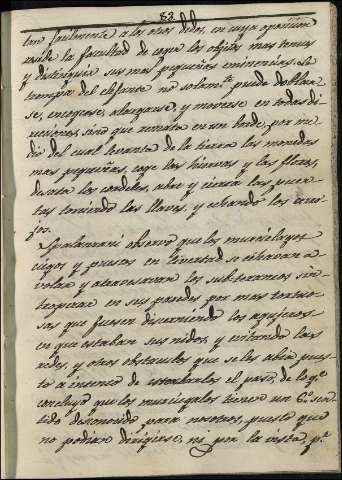 83.
tan facilmente a los otros dedos, en cuya oposicion
reside la facultad de coger los objetos mas tenues
y distinguir sus mas pequeñas eminencias. La
trompa del elefante no solam.te puede doblar-
se, encogerse, alargarse, y moverse en todas di-
recciones, sino que remata en un borde, por me-
dio del cual levanta de la tierra las monedas
mas pequeñas, coge las hiervas y las flores,
desata los cordeles, abre y cierra las puer-
tas torciendo las llaves, y echando los cerro-
jos.
Spalanzani observó que los murcielagos
ciegos y puestos en livertad se echavan a
volar y atravesavan los subterraneos sin
tropezar en sus paredes por mas tortuo-
sas que fuesen discerniendo los agujeros
en que estaban sus nidos, y evitando las
redes, y otros obstaculos que se les abia pues-
to a intento de estorbarles el paso, de lo q.e
concluyó que los murcielagos tienen un 6.o sen-
tido desconocido para nosotros, puesto que
no podian dirigirse, ni por la vista, p.r